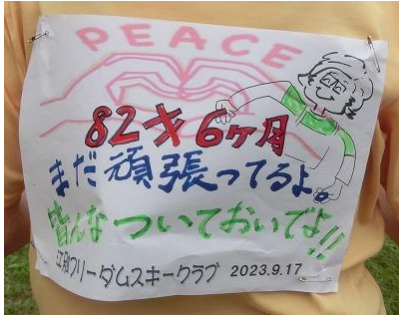 PEACE
82才6ヶ月
まだ頑張ってるよ。
皆んなついておいでよ!!
江別フリーダムスキークラブ 2023.9.17